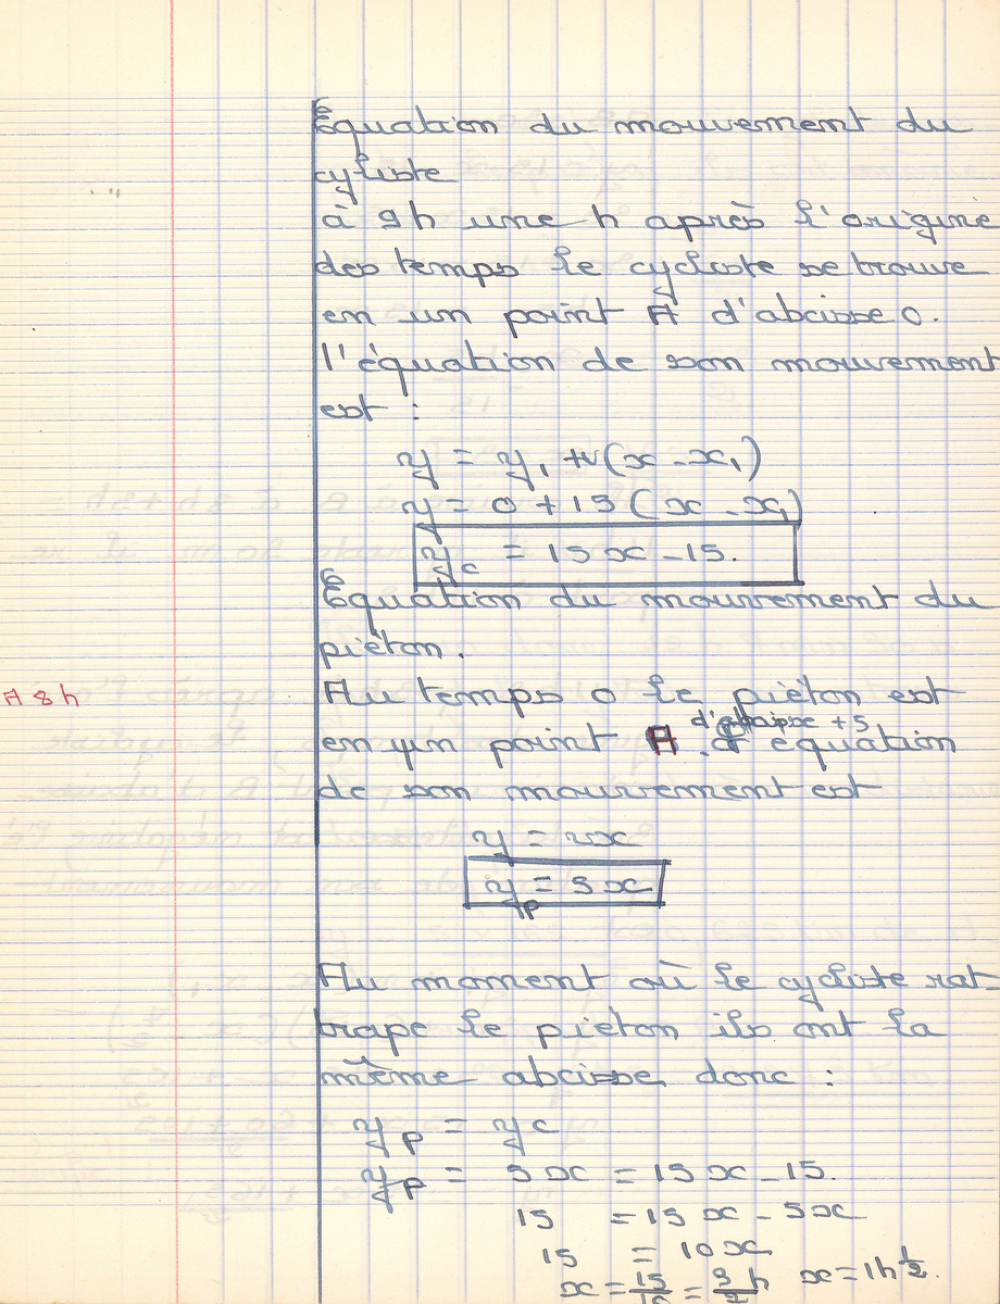 Équation du mouvement du
cycliste
à 9h une h après l'origine
des temps le cycliste se trouve
en un point A d'abcisse 0.
l'équation de son mouvement
est :
y = y₁ + v(x - x₁)
y = 0 + 15 (x - x₁)
y_c = 15x - 15.
Équation du mouvement du
piéton.
A 8h
Au temps 0 le piéton est
d'abcisse + 5
en un point A . équation
de son mouvement est
y = vx
y_p = 5x
Au moment où le cycliste rat-
trape le piéton ils ont la
même abcisse donc :
y_p = y_c
y_p = 5x = 15x - 15.
15 = 15x - 5x
15 = 10x
x = 15/10 = 3/2 h x = 1h 1/2.